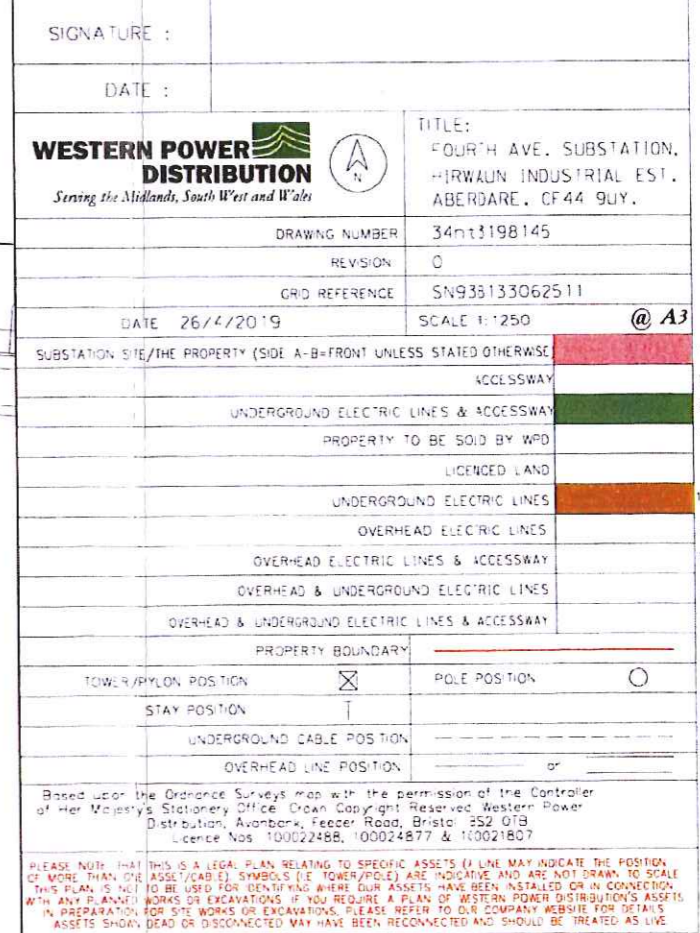 SIGNATURE :
DATE :
WESTERN POWER
DISTRIBUTION
Serving the Midlands, South West and Wales
N
TITLE:
FOURTH AVE. SUBSTATION,
HIRWAUN INDUSTRIAL EST,
ABERDARE, CF44 9UY.
DRAWING NUMBER 34nt3198145
REVISION 0
GRID REFERENCE SN938133062511
DATE 26/4/2019 SCALE 1:1250 @ A3
SUBSTATION SITE/THE PROPERTY (SIDE A-B=FRONT UNLESS STATED OTHERWISE)
ACCESSWAY
UNDERGROUND ELECTRIC LINES & ACCESSWAY
PROPERTY TO BE SOLD BY WPD
LICENCED LAND
UNDERGROUND ELECTRIC LINES
OVERHEAD ELECTRIC LINES
OVERHEAD ELECTRIC LINES & ACCESSWAY
OVERHEAD & UNDERGROUND ELECTRIC LINES
OVERHEAD & UNDERGROUND ELECTRIC LINES & ACCESSWAY
PROPERTY BOUNDARY
TOWER/PYLON POSITION POLE POSITION
STAY POSITION
UNDERGROUND CABLE POSITION
OVERHEAD LINE POSITION or
Based upon the Ordnance Surveys map with the permission of the Controller
of Her Majesty's Stationery Office Crown Copyright Reserved Western Power
Distribution, Avonbank, Feeder Road, Bristol BS2 0TB
Licence Nos 100022488, 100024877 & 100021807
PLEASE NOTE THAT THIS IS A LEGAL PLAN RELATING TO SPECIFIC ASSETS (A LINE MAY INDICATE THE POSITION
OF MORE THAN ONE ASSET/CABLE). SYMBOLS (I.E TOWER/POLE) ARE INDICATIVE AND ARE NOT DRAWN TO SCALE
THIS PLAN IS NOT TO BE USED FOR IDENTIFYING WHERE OUR ASSETS HAVE BEEN INSTALLED OR IN CONNECTION
WITH ANY PLANNED WORKS OR EXCAVATIONS IF YOU REQUIRE A PLAN OF WESTERN POWER DISTRIBUTION'S ASSETS
IN PREPARATION FOR SITE WORKS OR EXCAVATIONS, PLEASE REFER TO OUR COMPANY WEBSITE FOR DETAILS
ASSETS SHOWN DEAD OR DISCONNECTED MAY HAVE BEEN RECONNECTED AND SHOULD BE TREATED AS LIVE